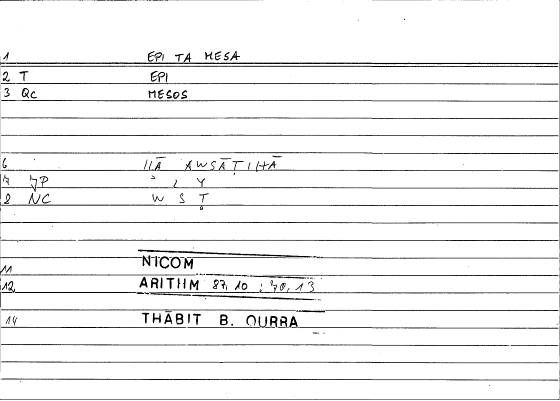 1 EPI TA MESA
2 T EPI
3 Qc MESOS
6 AWSĀṬIHĀ
7 JP ʾ L Y
8 NC W S Ṭ
11 NICOM
12 ARITHM 87, 10 : 70, 13
14 THĀBIT B. QURRA